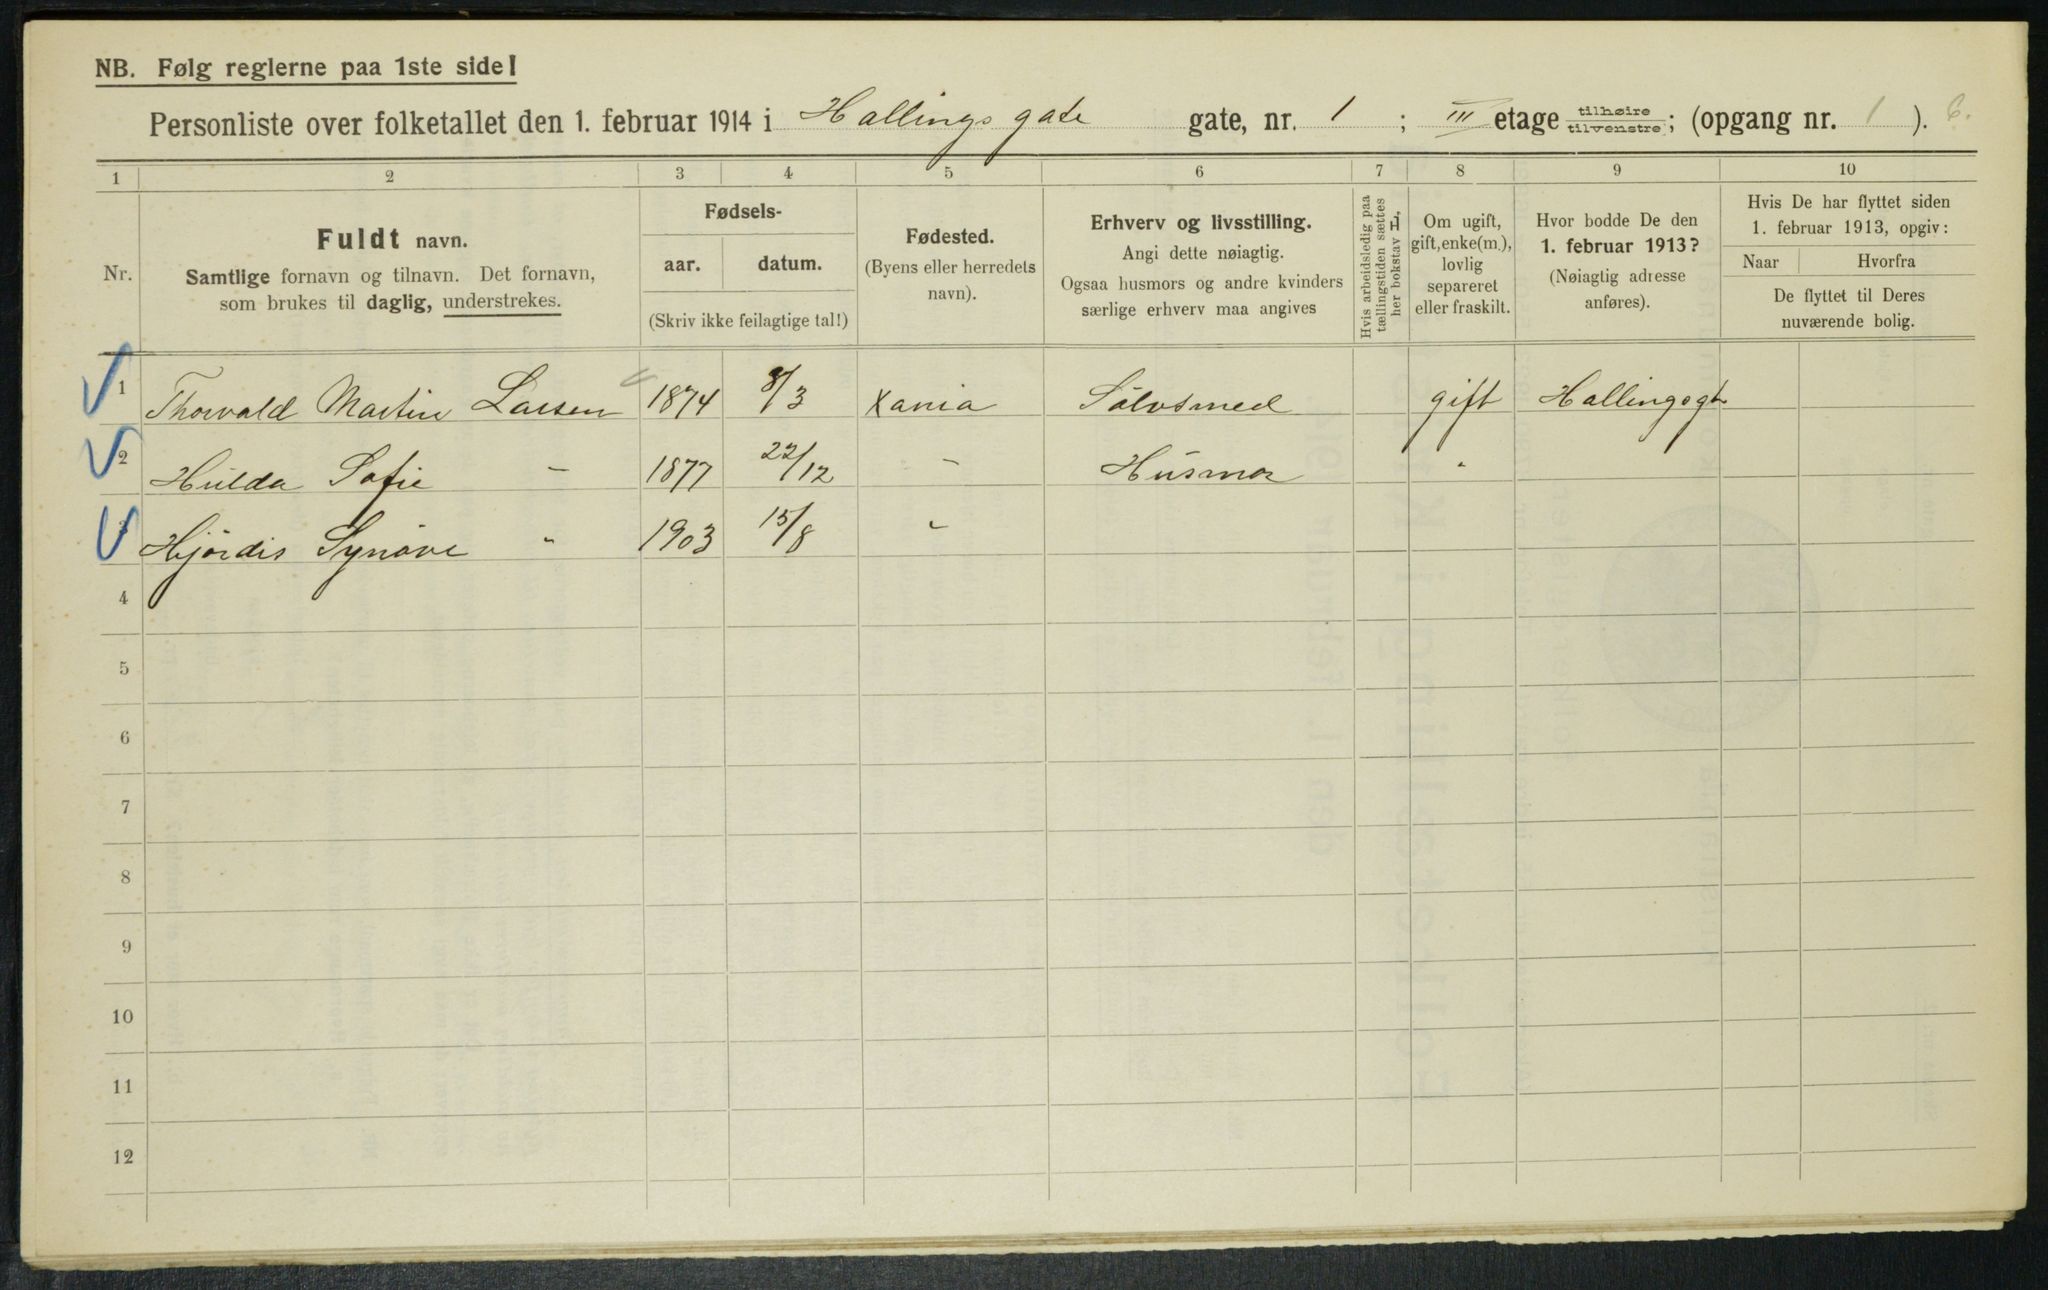 NB. Følg reglerne paa 1ste side!
Personliste over folketallet den 1. februar 1914 i Hallings gate gate, nr. 1 ; III etage tilhøire tilvenstre; (opgang nr. 1 ). 6.
1 2 3 4 5 6 7 8 9 10
Nr.
Fuldt navn.
Samtlige fornavn og tilnavn. Det fornavn,
som brukes til daglig, understrekes.
Fødsels-
aar. datum.
(Skriv ikke feilagtige tal!)
Fødested.
(Byens eller herredets
navn).
Erhverv og livsstilling.
Angi dette nøiagtig.
Ogsaa husmors og andre kvinders
særlige erhverv maa angives
Hvis arbeidsledig paa
tællingstiden sættes
her bokstav L.
Om ugift,
gift, enke(m.),
lovlig
separeret
eller fraskilt.
Hvor bodde De den
1. februar 1913?
(Nøiagtig adresse
anføres).
Hvis De har flyttet siden
1. februar 1913, opgiv:
Naar Hvorfra
De flyttet til Deres
nuværende bolig.
1 Thorvald Martin Larsen 1874 8/3 Xania Sølvsmed gift Hallingsgt
2 Hulda Sofie – 1877 22/12 – Husmor "
3 Hjördis Synöve " 1903 15/8 "
4
5
6
7
8
9
10
11
12